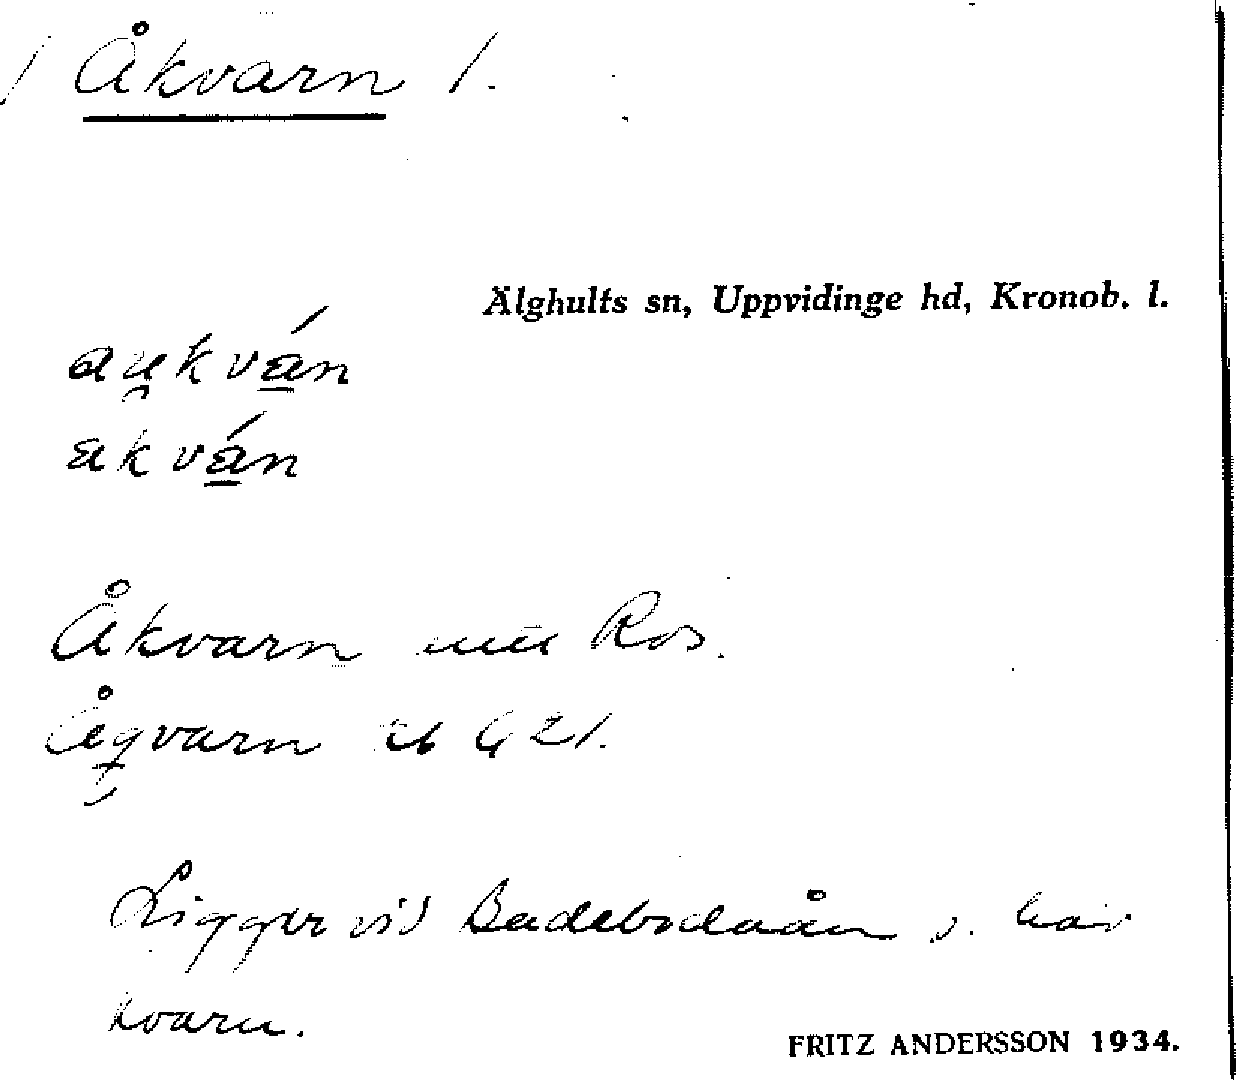 Åkvarn 1.
Älghults sn, Uppvidinge hd, Kronob. l.
au̯kván
akván
Åkvarn Ros.
Åqvarn 21.
Ligger vid Badebodaån o. har
kvarn.
FRITZ ANDERSSON 1934.